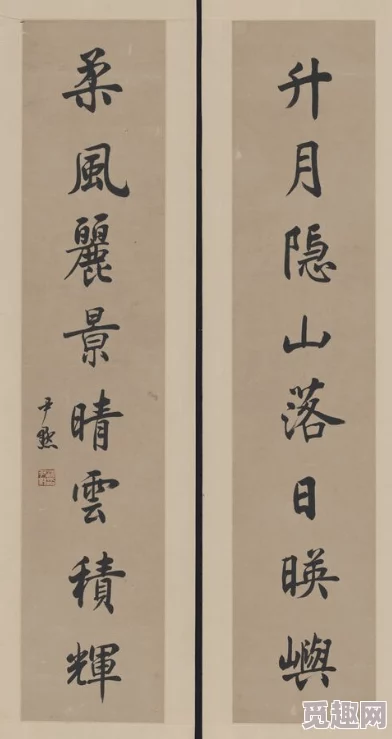 升月隐山落日暎嶼
柔風麗景晴雲積輝
尹默
觅趣网